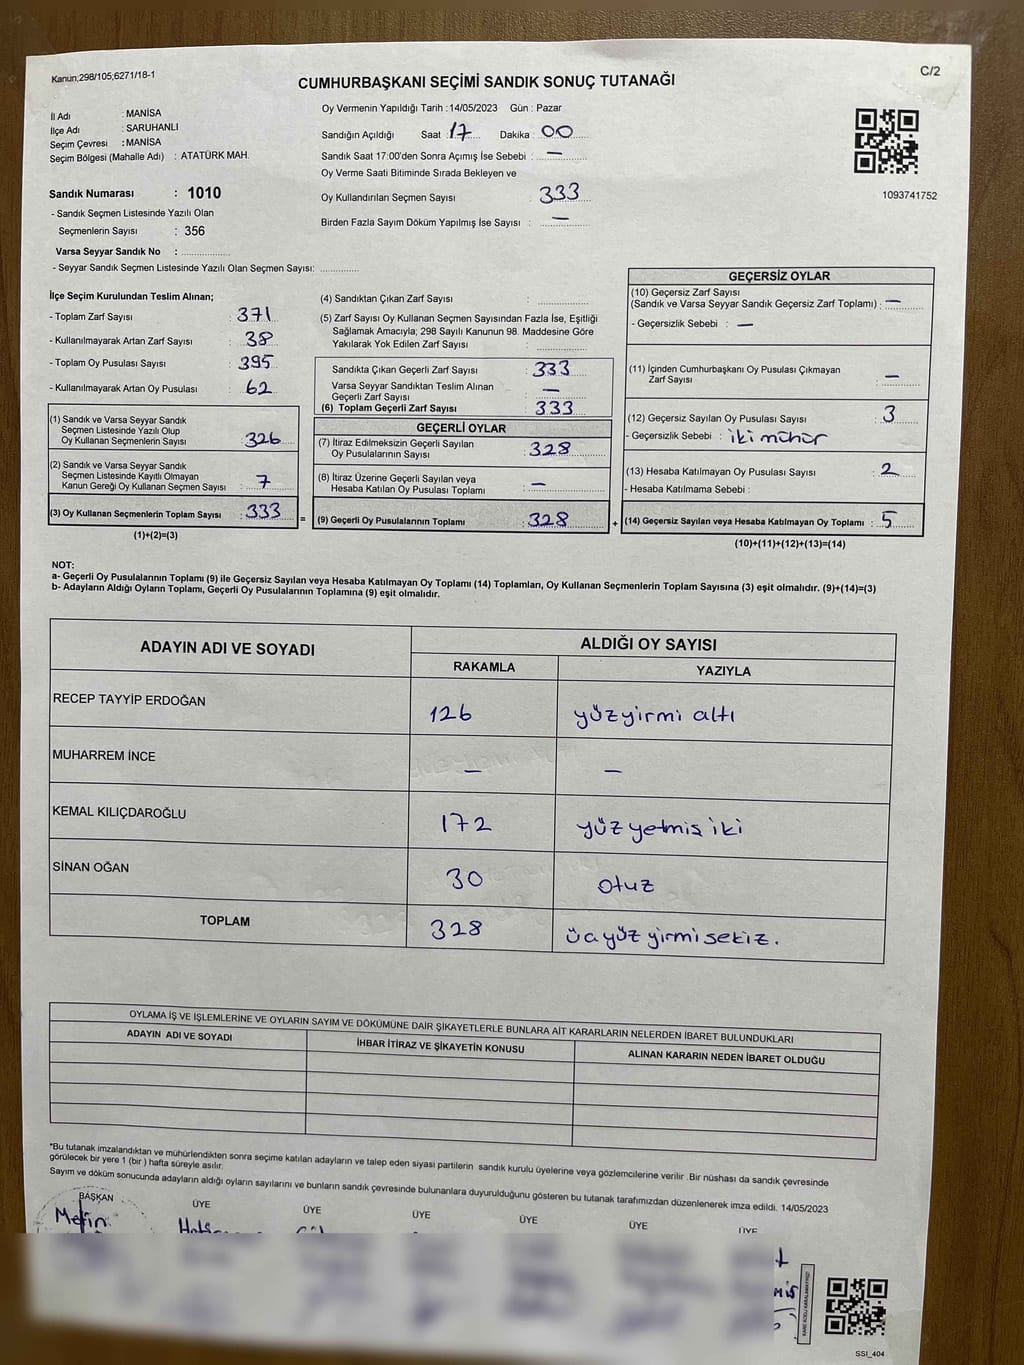 Kanun;298/105;6271/18-1
C/2
CUMHURBAŞKANI SEÇİMİ SANDIK SONUÇ TUTANAĞI
İl Adı : MANİSA
İlçe Adı : SARUHANLI
Seçim Çevresi : MANİSA
Seçim Bölgesi (Mahalle Adı) : ATATÜRK MAH.
Sandık Numarası : 1010
- Sandık Seçmen Listesinde Yazılı Olan
Seçmenlerin Sayısı : 356
Varsa Seyyar Sandık No :
- Seyyar Sandık Seçmen Listesinde Yazılı Olan Seçmen Sayısı:
Oy Vermenin Yapıldığı Tarih : 14/05/2023 Gün : Pazar
Sandığın Açıldığı Saat : 17 Dakika : 00
Sandık Saat 17:00'den Sonra Açımış İse Sebebi : —
Oy Verme Saati Bitiminde Sırada Bekleyen ve
Oy Kullandırılan Seçmen Sayısı : 333
Birden Fazla Sayım Döküm Yapılmış İse Sayısı : —
1093741752
İlçe Seçim Kurulundan Teslim Alınan;
- Toplam Zarf Sayısı : 371
- Kullanılmayarak Artan Zarf Sayısı : 38
- Toplam Oy Pusulası Sayısı : 395
- Kullanılmayarak Artan Oy Pusulası : 62
(1) Sandık ve Varsa Seyyar Sandık
Seçmen Listesinde Yazılı Olup
Oy Kullanan Seçmenlerin Sayısı : 326
(2) Sandık ve Varsa Seyyar Sandık
Seçmen Listesinde Kayıtlı Olmayan
Kanun Gereği Oy Kullanan Seçmen Sayısı : 7
(3) Oy Kullanan Seçmenlerin Toplam Sayısı : 333
(1)+(2)=(3)
=
(4) Sandıktan Çıkan Zarf Sayısı :
(5) Zarf Sayısı Oy Kullanan Seçmen Sayısından Fazla İse, Eşitliği
Sağlamak Amacıyla; 298 Sayılı Kanunun 98. Maddesine Göre
Yakılarak Yok Edilen Zarf Sayısı :
Sandıkta Çıkan Geçerli Zarf Sayısı : 333
Varsa Seyyar Sandıktan Teslim Alınan
Geçerli Zarf Sayısı : —
(6) Toplam Geçerli Zarf Sayısı : 333
GEÇERLİ OYLAR
(7) İtiraz Edilmeksizin Geçerli Sayılan
Oy Pusulalarının Sayısı : 328
(8) İtiraz Üzerine Geçerli Sayılan veya
Hesaba Katılan Oy Pusulası Toplamı : —
(9) Geçerli Oy Pusulalarının Toplamı : 328
+
GEÇERSİZ OYLAR
(10) Geçersiz Zarf Sayısı
(Sandık ve Varsa Seyyar Sandık Geçersiz Zarf Toplamı) : —
- Geçersizlik Sebebi : —
(11) İçinden Cumhurbaşkanı Oy Pusulası Çıkmayan
Zarf Sayısı : —
(12) Geçersiz Sayılan Oy Pusulası Sayısı : 3
- Geçersizlik Sebebi : iki mühür
(13) Hesaba Katılmayan Oy Pusulası Sayısı : 2
- Hesaba Katılmama Sebebi :
(14) Geçersiz Sayılan veya Hesaba Katılmayan Oy Toplamı : 5
(10)+(11)+(12)+(13)=(14)
NOT:
a- Geçerli Oy Pusulalarının Toplamı (9) ile Geçersiz Sayılan veya Hesaba Katılmayan Oy Toplamı (14) Toplamları, Oy Kullanan Seçmenlerin Toplam Sayısına (3) eşit olmalıdır. (9)+(14)=(3)
b- Adayların Aldığı Oyların Toplamı, Geçerli Oy Pusulalarının Toplamına (9) eşit olmalıdır.
ADAYIN ADI VE SOYADI ALDIĞI OY SAYISI
RAKAMLA YAZIYLA
RECEP TAYYİP ERDOĞAN 126 yüzyirmi altı
MUHARREM İNCE — —
KEMAL KILIÇDAROĞLU 172 yüz yetmiş iki
SİNAN OĞAN 30 otuz
TOPLAM 328 üçyüz yirmi sekiz.
OYLAMA İŞ VE İŞLEMLERİNE VE OYLARIN SAYIM VE DÖKÜMÜNE DAİR ŞİKAYETLERLE BUNLARA AİT KARARLARIN NELERDEN İBARET BULUNDUKLARI
ADAYIN ADI VE SOYADI İHBAR İTİRAZ VE ŞİKAYETİN KONUSU ALINAN KARARIN NEDEN İBARET OLDUĞU
*Bu tutanak imzalandıktan ve mühürlendikten sonra seçime katılan adayların ve talep eden siyasi partilerin sandık kurulu üyelerine veya gözlemcilerine verilir .Bir nüshası da sandık çevresinde
görülecek bir yere 1 (bir ) hafta süreyle asılır.
Sayım ve döküm sonucunda adayların aldığı oyların sayılarını ve bunların sandık çevresinde bulunanlara duyurulduğunu gösteren bu tutanak tarafımızdan düzenlenerek imza edildi. 14/05/2023
BAŞKAN ÜYE ÜYE ÜYE ÜYE ÜYE ÜYE
Metin
SSI_404